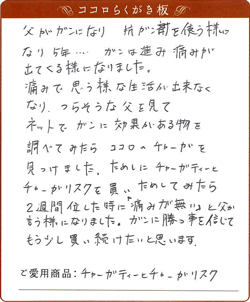 ココロらくがき板
父がガンになり 抗ガン剤を使う様に
なり5年… ガンは進み痛みが
出てくる様になりました。
痛みで思う様な生活が出来なく
なり、つらそうな父を見て
ネットでガンに効果がある物を
調べてみたらココロのチャーガを
見つけました。ためしにチャーガティーと
チャーガリスクを買いためしてみたら
2週間位した時に「痛みが無い」と父が
言う様になりました。ガンに勝つ事を信じて
もう少し買い続けたいと思います。
ご愛用商品:チャーガティーとチャーガリスク